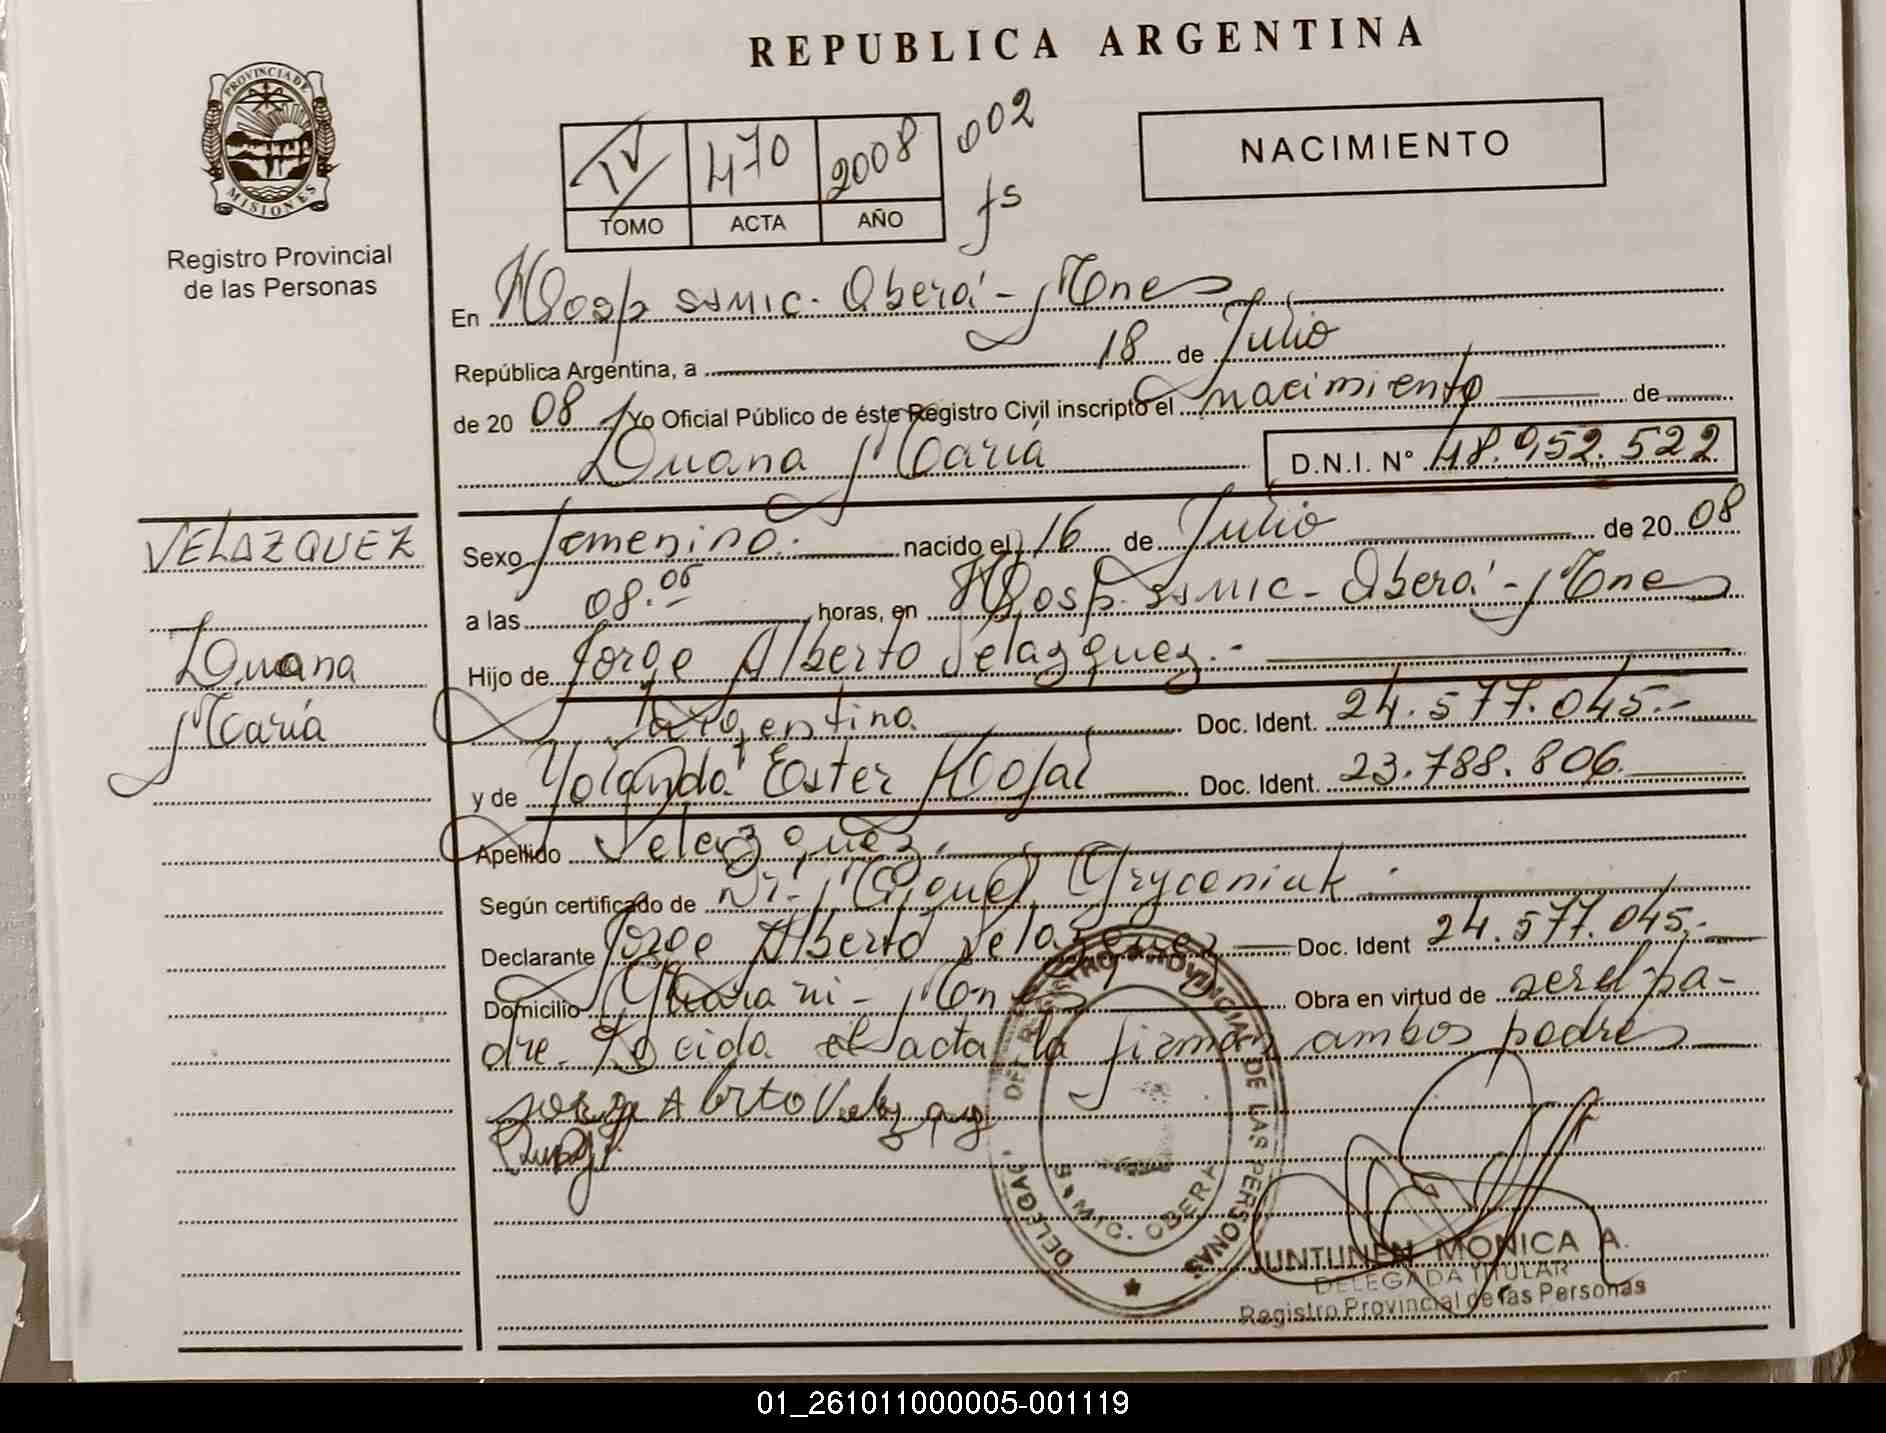 REPUBLICA ARGENTINA
PROVINCIA DE
MISIONES
Registro Provincial
de las Personas
IV 470 2008 002
TOMO ACTA AÑO fs
NACIMIENTO
En Hosp SSMIC. Oberá - Mnes
República Argentina, a 18 de Julio
de 20 08 Yo Oficial Público de éste Registro Civil inscripto el nacimiento de
Luana María D.N.I. N° 48.952.522
VELAZQUEZ
Luana
María
Sexo femenino. nacido el 16 de Julio de 20 08
a las 08.05 horas, en Hosp. SSMIC - Oberá - Mnes
Hijo de Jorge Alberto Velazquez.-
argentina Doc. Ident. 24.577.045.-
y de Yolanda Ester Doc. Ident. 23.788.806.
Apellido Velazquez.
Según certificado de Miguel Gryceniuk.
Declarante Jorge Alberto Velazquez Doc. Ident 24.577.045.-
Domicilio Guaraní - Mnes Obra en virtud de ser el pa-
dre. Leída el acta la firman ambos padres
DELEGAC. DEL REGISTRO PROVINCIAL DE LAS PERSONAS
S.S.MIC. OBERA
JUNTUNEN MONICA A.
DELEGADA TITULAR
Registro Provincial de las Personas
01_261011000005-001119